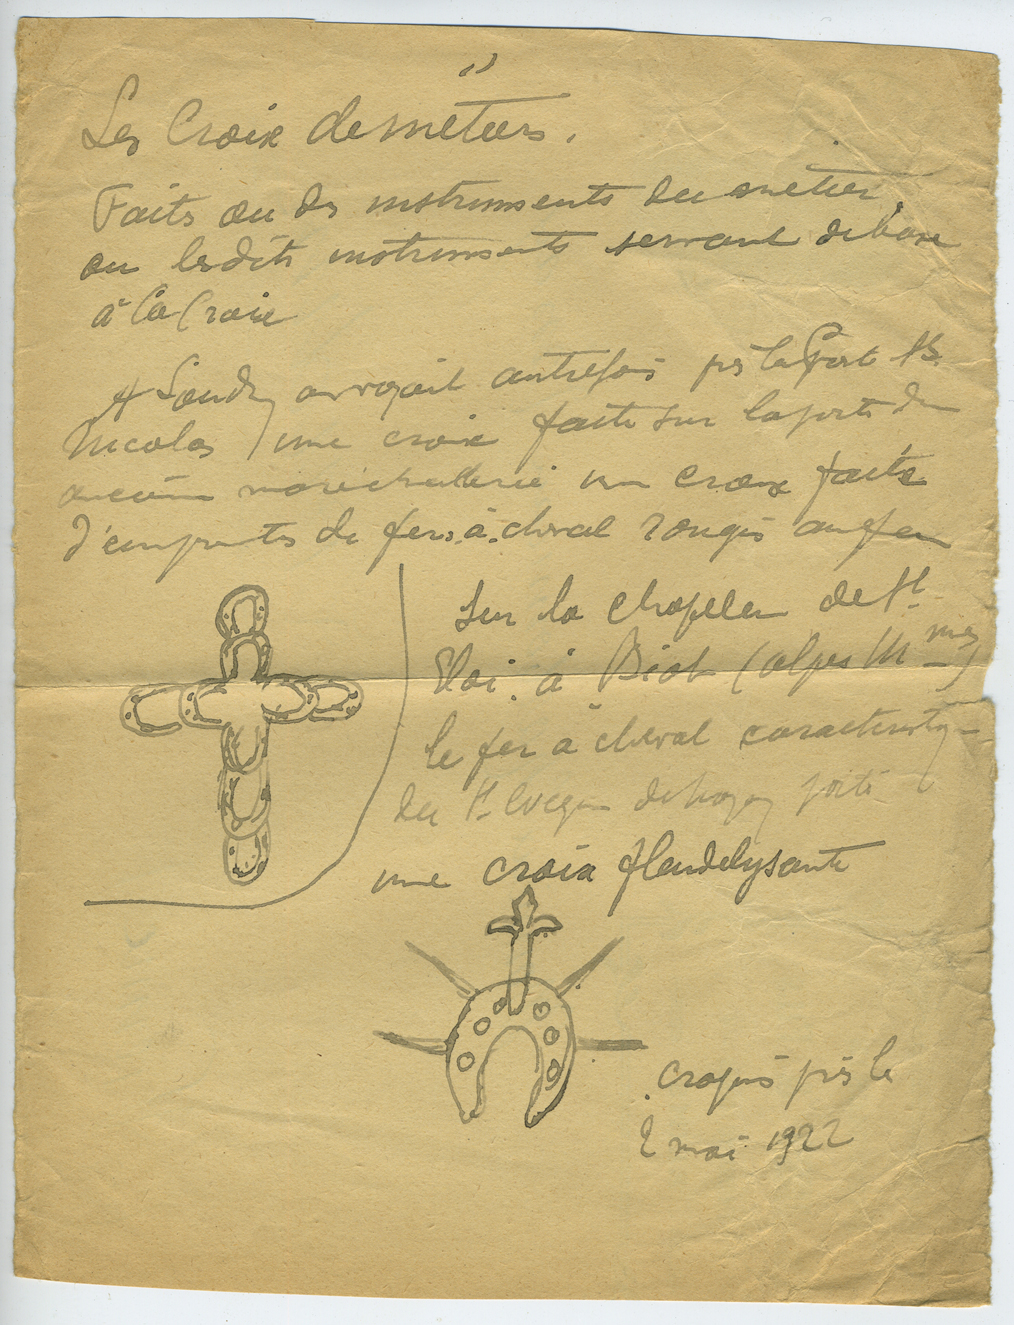 Les Croix de métiers.
Faites ou des instruments du métier,
ou lesdits instruments servant de base
à la Croix
A Loudun on voyait autrefois près la Porte St
Nicolas, une croix faite sur la porte d'une
ancienne maréchallerie une croix faite
d'empreintes de fers à cheval rougis au feu
Sur la chapelle de St
Eloi à Biot (Alpes Mmes)
le fer à cheval caractéristique
du St
une croix fleudelysante
croquis pris le
2 mai 1922